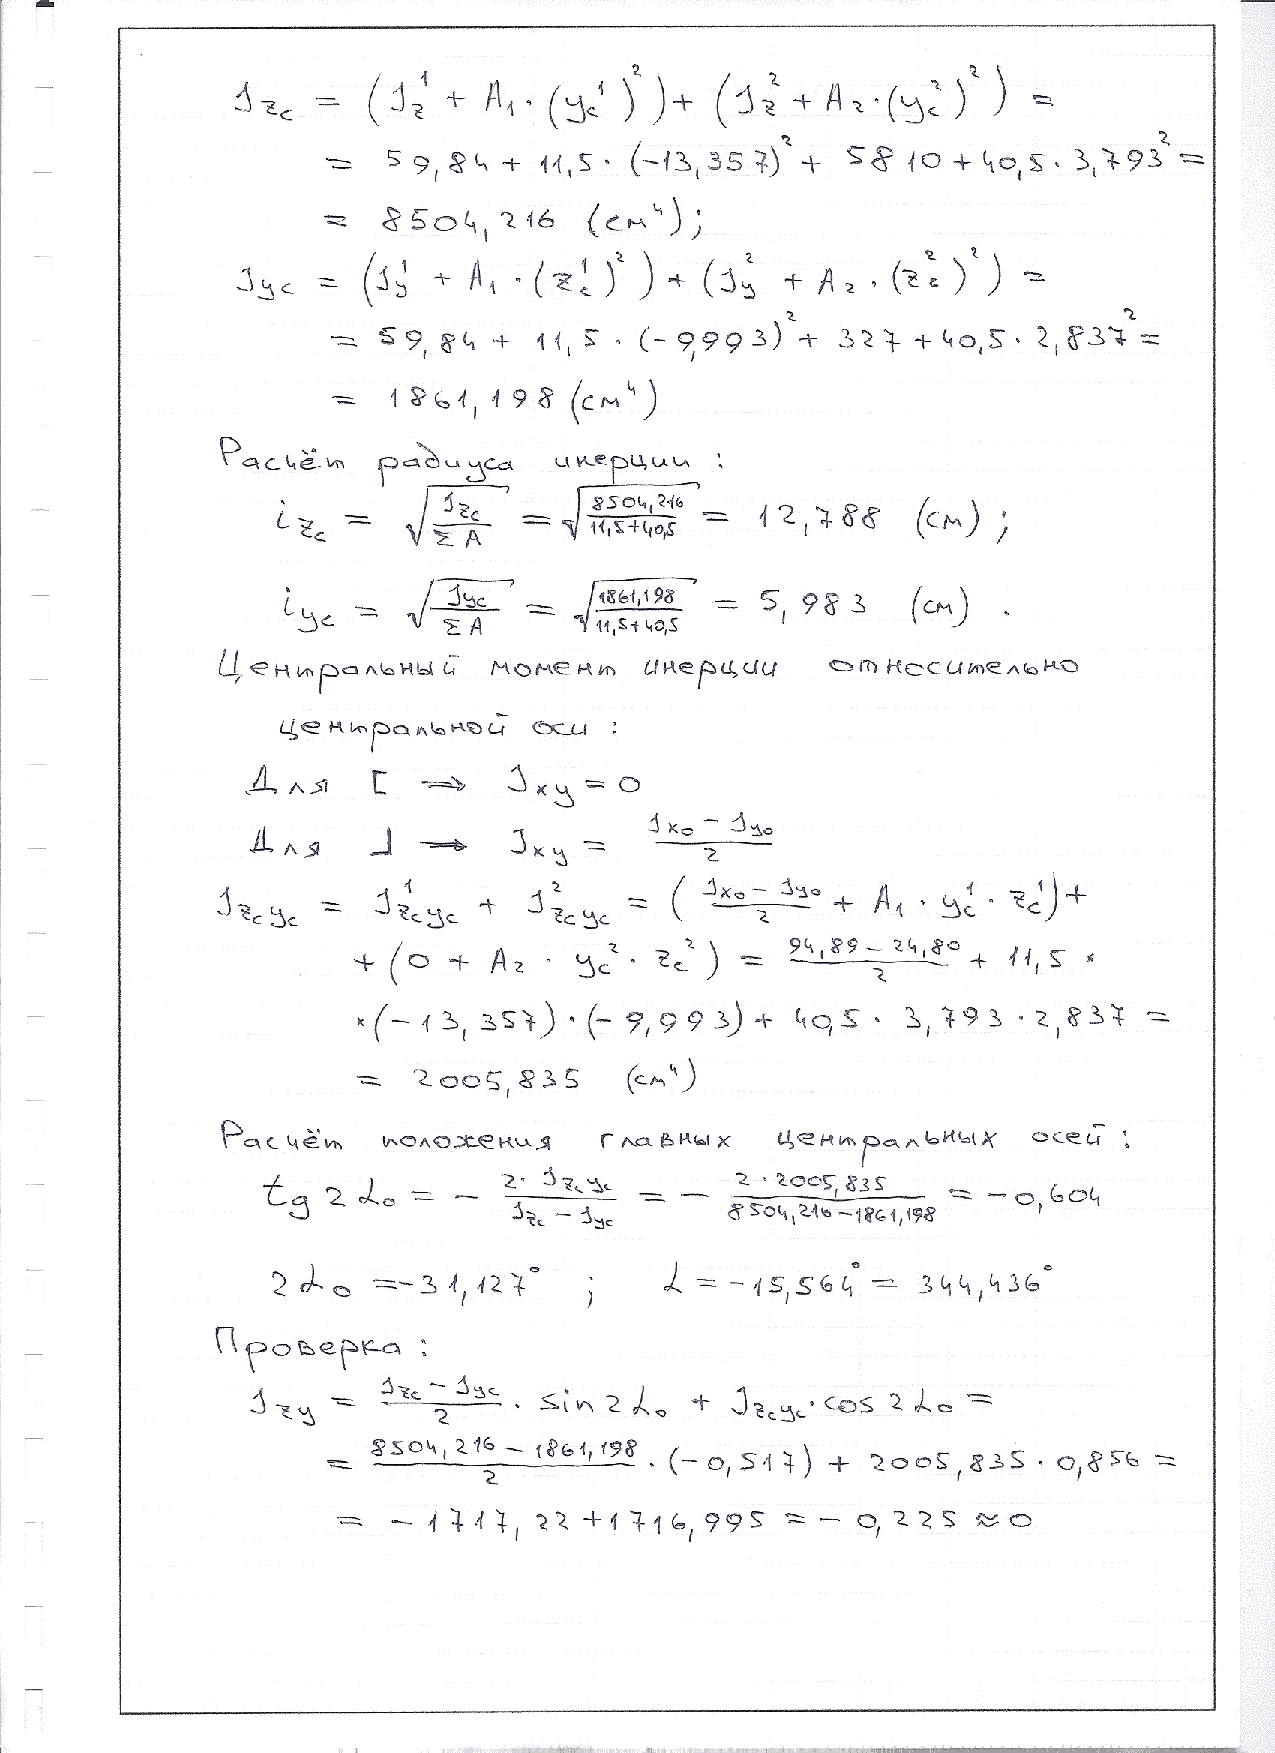 J_zc = (J_z^1 + A_1 · (y_c^1)^2) + (J_z^2 + A_2 · (y_c^2)^2) =
= 59,84 + 11,5 · (-13,357)^2 + 5810 + 40,5 · 3,793^2 =
= 8504,216 (см^4);
J_yc = (J_y^1 + A_1 · (z_c^1)^2) + (J_y^2 + A_2 · (z_c^2)^2) =
= 59,84 + 11,5 · (-9,993)^2 + 327 + 40,5 · 2,837^2 =
= 1861,198 (см^4)
Расчёт радиуса инерции :
i_zc = √(J_zc / ΣA) = √(8504,216 / 11,5+40,5) = 12,788 (см) ;
i_yc = √(J_yc / ΣA) = √(1861,198 / 11,5+40,5) = 5,983 (см) .
Центральный момент инерции относительно
центральной оси :
Для [ ⇒ J_xy = 0
Для ⅃ ⇒ J_xy = (J_x0 - J_y0) / 2
J_zcyc = J_zcyc^1 + J_zcyc^2 = ( (J_x0 - J_y0) / 2 + A_1 · y_c^1 · z_c^1) +
+ (0 + A_2 · y_c^2 · z_c^2) = (94,89 - 24,80) / 2 + 11,5 *
* (-13,357) · (-9,993) + 40,5 · 3,793 · 2,837 =
= 2005,835 (см^4)
Расчёт положения главных центральных осей :
tg 2α_0 = - (2 · J_zcyc) / (J_zc - J_yc) = - (2 · 2005,835) / (8504,216 - 1861,198) = -0,604
2α_0 = -31,127° ; α = -15,564° = 344,436°
Проверка :
J_zy = (J_zc - J_yc) / 2 · sin 2α_0 + J_zcyc · cos 2α_0 =
= (8504,216 - 1861,198) / 2 · (-0,517) + 2005,835 · 0,856 =
= -1717,22 + 1716,995 = -0,225 ≈ 0